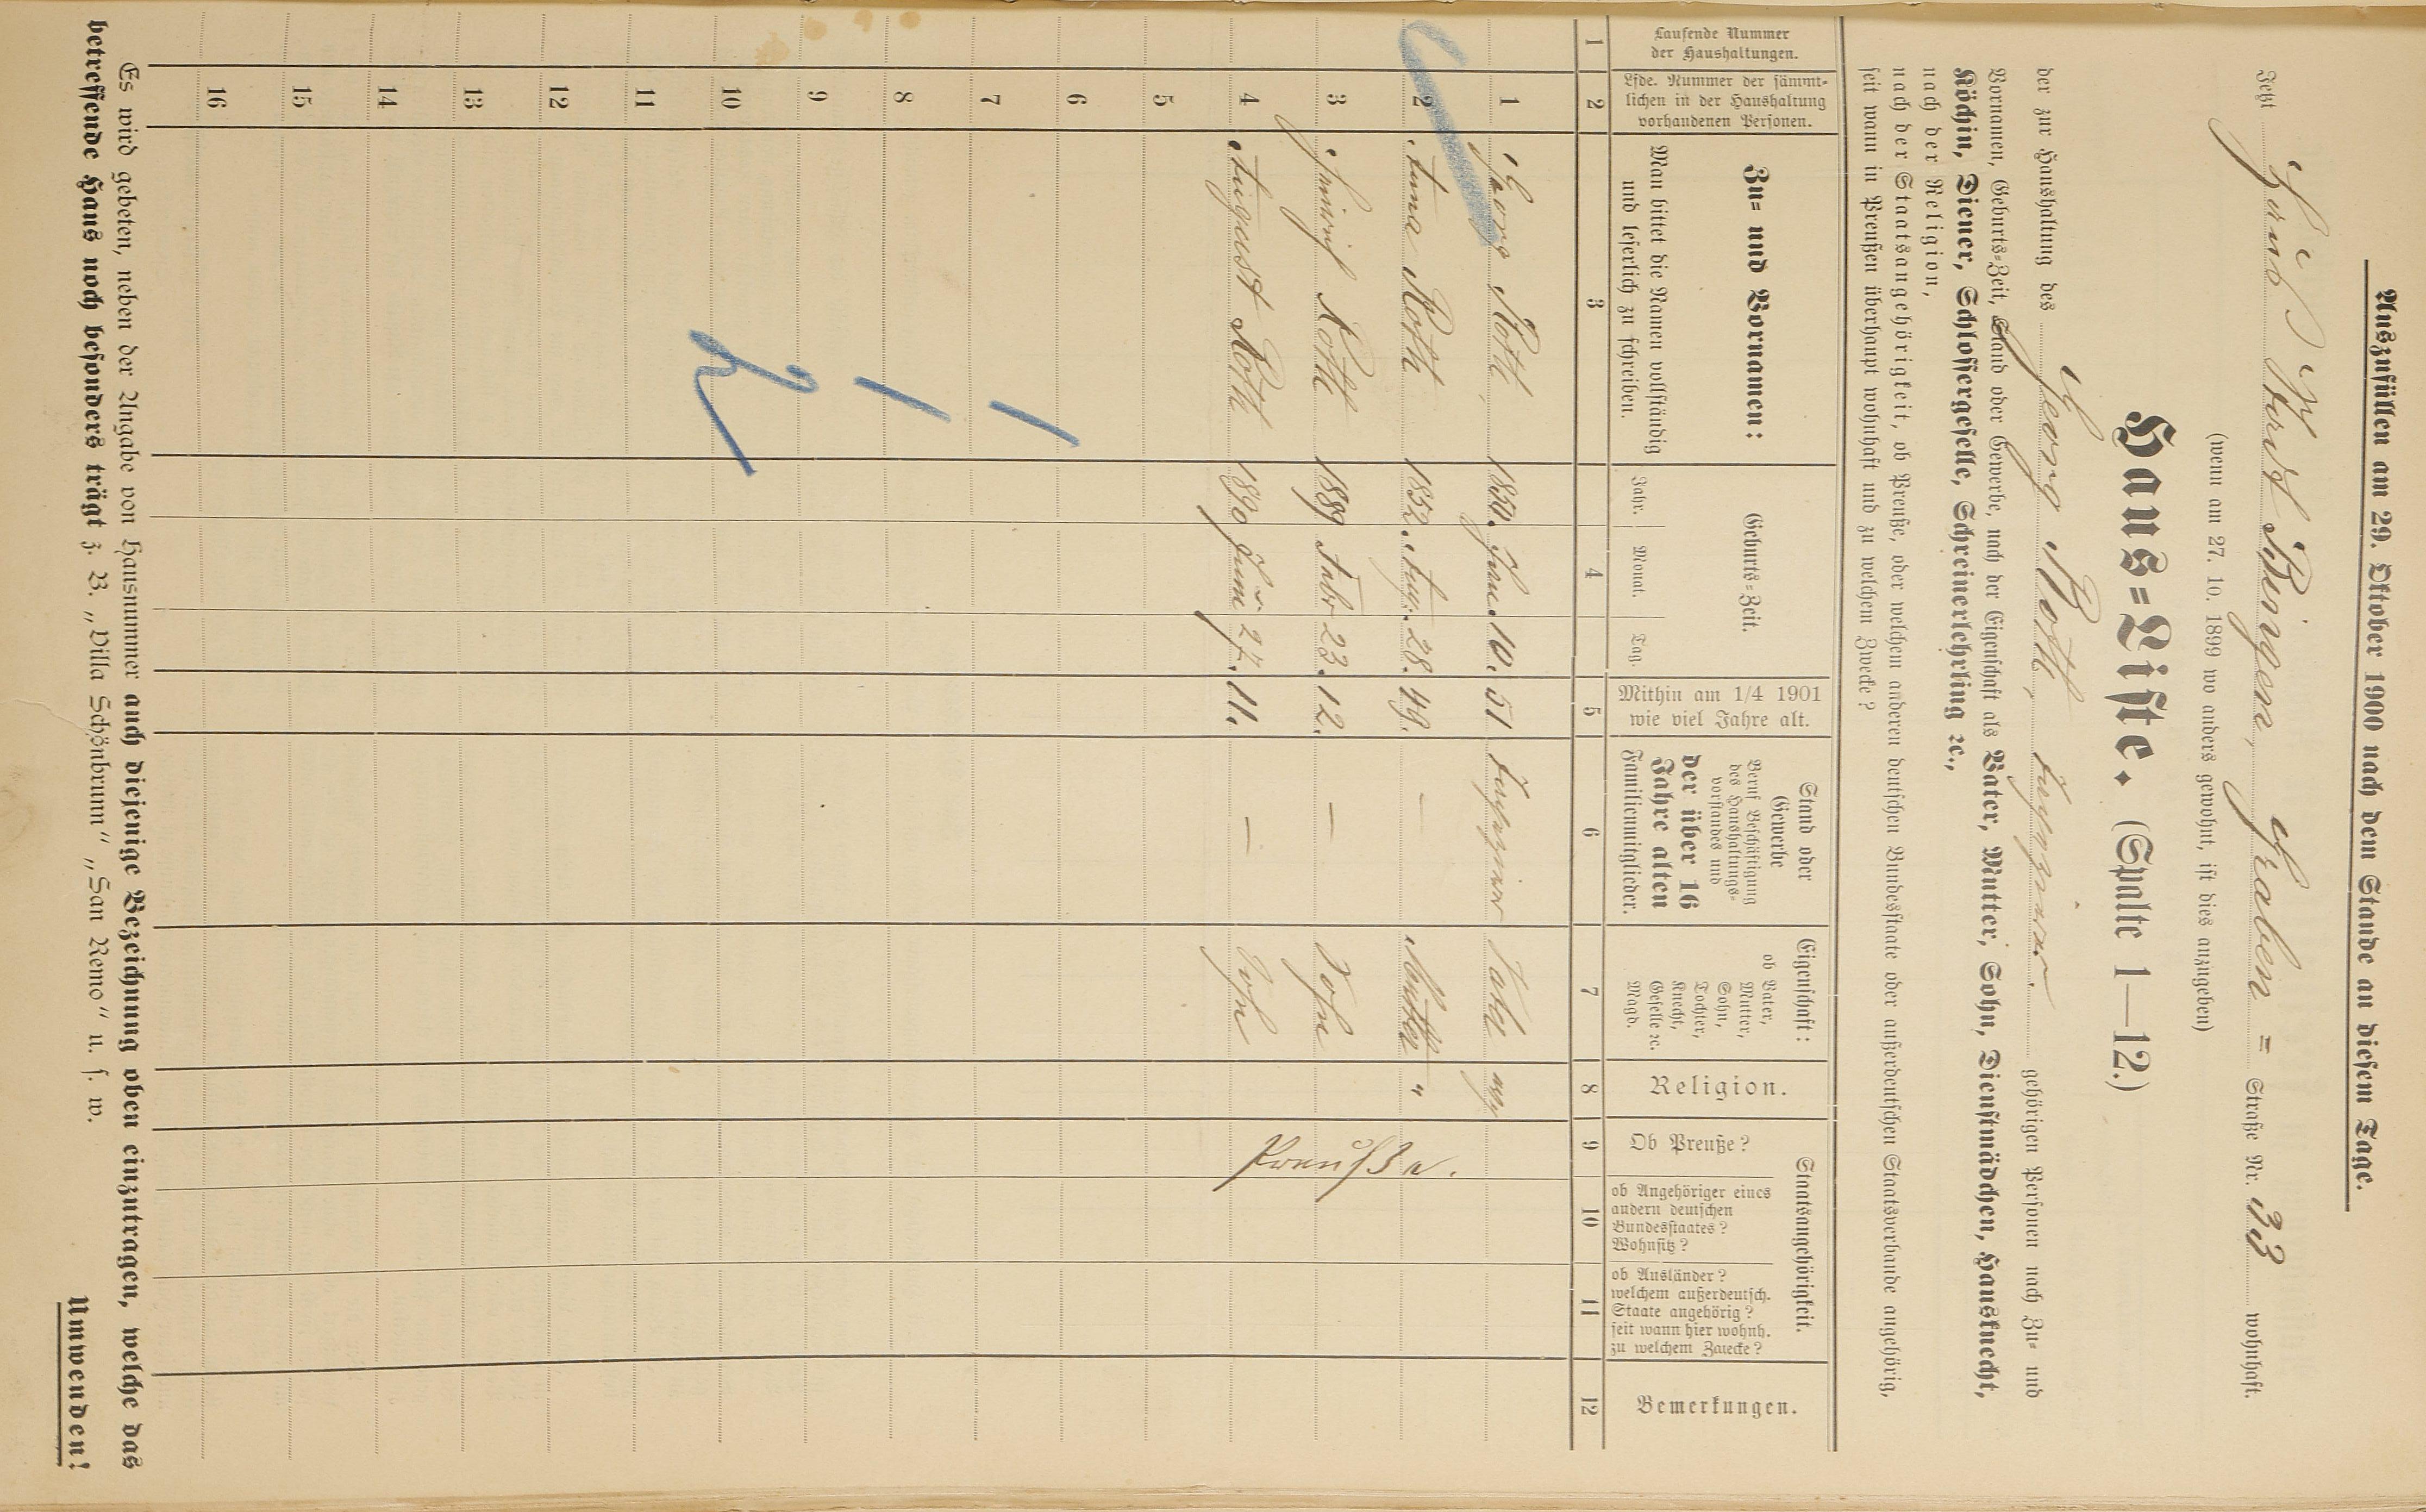 Auszufüllen am 29. Oktober 1900 nach dem Stande an diesem Tage.
Jetzt Stadt Bingen, Graben = Straße Nr. 33 wohnhaft.
(wenn am 27. 10. 1899 wo anders gewohnt, ist dies anzugeben)
Haus=Liste. (Spalte 1—12.)
der zur Haushaltung des Georg Roth, gehörigen Personen nach Zu= und
Vornamen, Geburts=Zeit, Stand oder Gewerbe, nach der Eigenschaft als Vater, Mutter, Sohn, Dienstmädchen, Hausknecht,
Köchin, Diener, Schlossergeselle, Schreinerlehrling ꝛc.,
nach der Religion,
nach der Staatsangehörigkeit, ob Preuße, oder welchem anderen deutschen Bundesstaate oder außerdeutschen Staatsverbande angehörig,
seit wann in Preußen überhaupt wohnhaft und zu welchem Zwecke?
Laufende Nummer
der Haushaltungen.
Lfde. Nummer der sämmt-
lichen in der Haushaltung
vorhandenen Personen.
Zu= und Vornamen:
Man bittet die Namen vollständig
und leserlich zu schreiben.
Geburts=Zeit.
Jahr. Monat. Tag.
Mithin am 1/4 1901
wie viel Jahre alt.
Stand oder
Gewerbe
Beruf Beschäftigung
des Haushaltungs-
vorstandes und
der über 16
Jahre alten
Familienmitglieder.
Eigenschaft:
ob Vater,
Mutter,
Sohn,
Tochter,
Knecht,
Geselle ꝛc.
Magd.
Religion.
Staatsangehörigkeit.
Ob Preuße?
ob Angehöriger eines
andern deutschen
Bundesstaates?
Wohnsitz?
ob Ausländer?
welchem außerdeutsch.
Staate angehörig?
seit wann hier wohnh.
zu welchem Zwecke?
Bemerkungen.
1 2 3 4 5 6 7 8 9 10 11 12
1 Georg Roth 1850. 10. 51 Vater
2 Anna Roth 1852. Aug. 28. 49. — Mutter "
3 Heinrich Roth 1889 Febr 23. 12. — Sohn
4 August Roth 1890 Juni 27. 11. — Sohn
Preuße.
5
6
7
8
9
10
11
12
13
14
15
16
Es wird gebeten, neben der Angabe von Hausnummer auch diejenige Bezeichnung oben einzutragen, welche das
betreffende Haus noch besonders trägt z. B. „Villa Schönbrunn“ „San Remo“ u. s. w.
Umwenden!